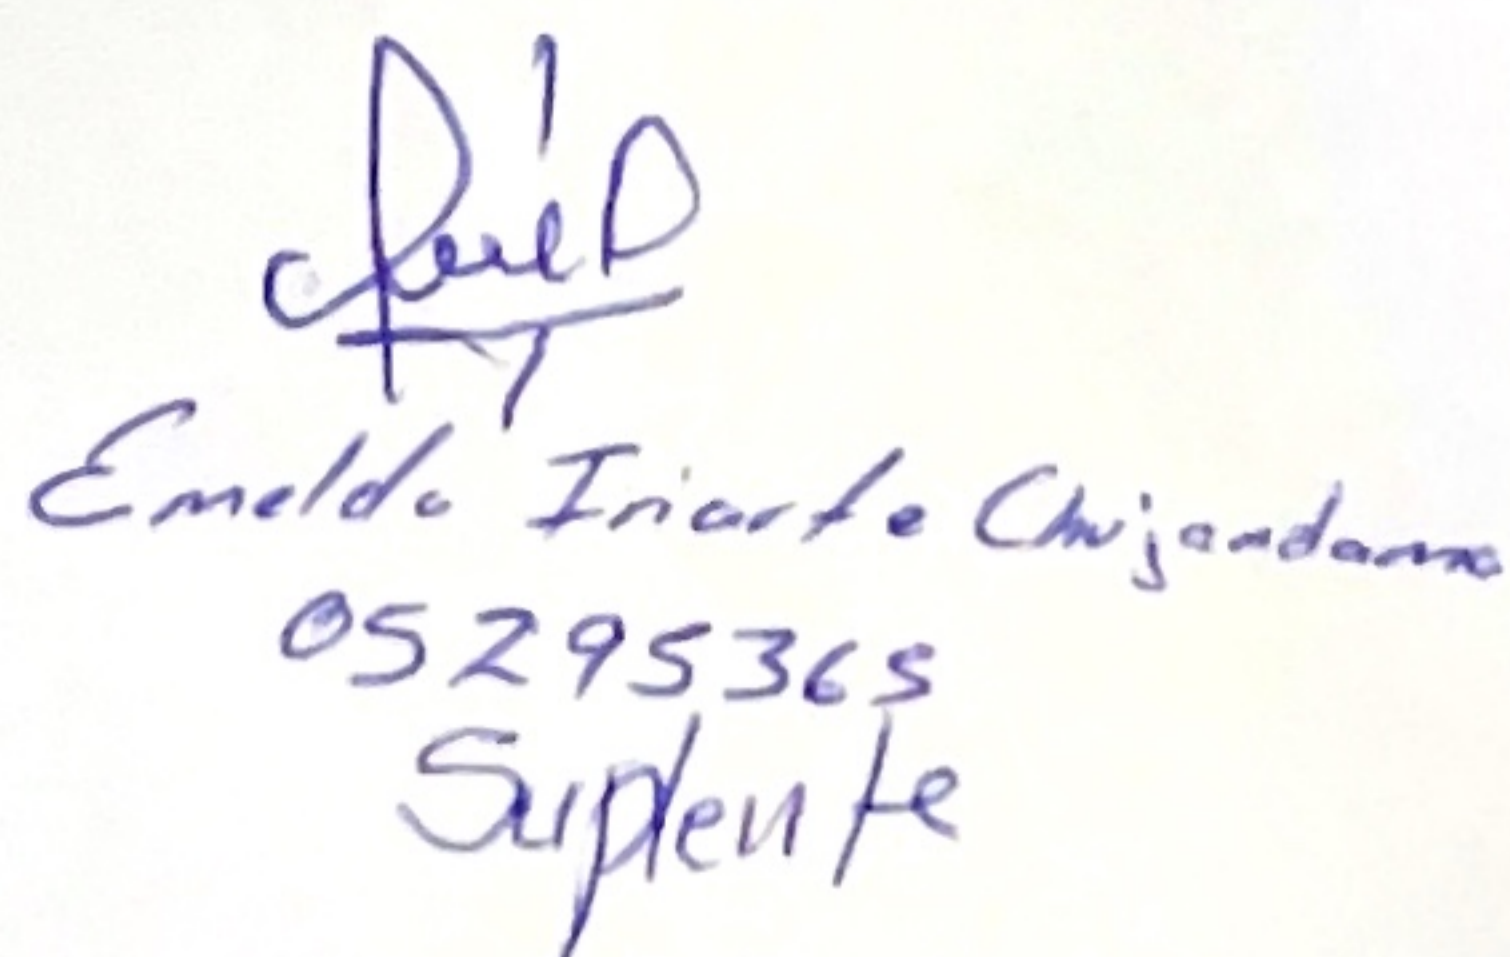 Emelda Iriarte Chujandama
05295365
Suplente